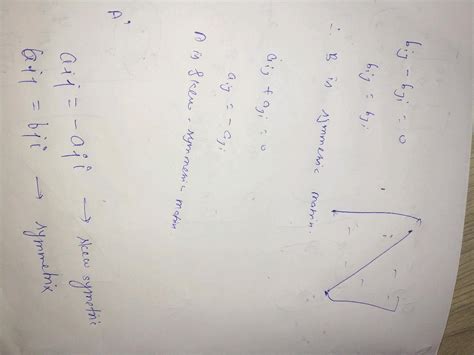 bij - bji = 0
bij = bji
∴ B is symmetric matrix.
aij + aji = 0
aij = -aji
A is skew-symmetric matrix.
A'
aij = -aji → skew symetric
bij = bji → symmetrix